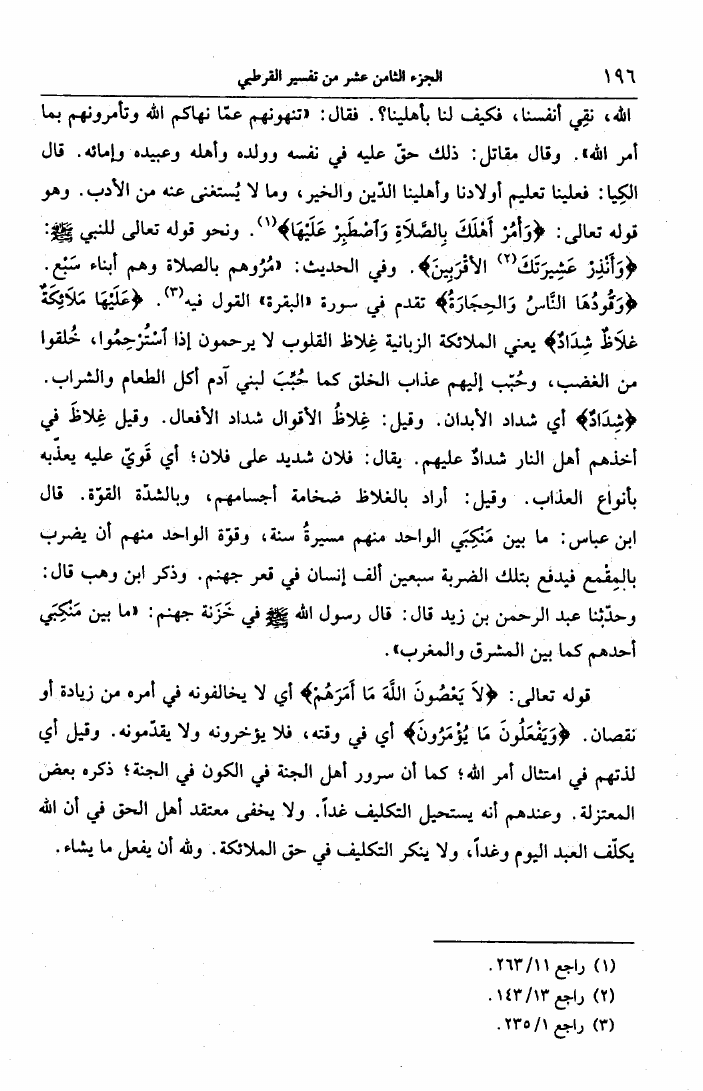 ١٩٦ الجزء الثامن عشر من تفسير القرطبي
الله، نقِي أنفسنا، فكيف لنا بأهلينا؟. فقال: «تنهونهم عمّا نهاكم الله وتأمرونهم بما
أمر الله». وقال مقاتل: ذلك حقّ عليه في نفسه وولده وأهله وعبيده وإمائه. قال
الكِيا: فعلينا تعليم أولادنا وأهلينا الدّين والخير، وما لا يُستغنى عنه من الأدب. وهو
قوله تعالى: ﴿وَأْمُرْ أَهْلَكَ بِالصَّلَاةِ وَٱصْطَبِرْ عَلَيْهَا﴾(١). ونحو قوله تعالى للنبي ﷺ:
﴿وَأَنْذِرْ عَشِيرَتَكَ(٢) الأَقْرَبِينَ﴾. وفي الحديث: «مُرُوهم بالصلاة وهم أبناء سَبْع.
﴿وَقُودُهَا النَّاسُ وَالحِجَارَةُ﴾ تقدم في سورة «البقرة» القول فيه(٣). ﴿عَلَيْهَا مَلَائِكَةٌ
غِلَاظٌ شِدَادٌ﴾ يعني الملائكة الزبانية غِلاظ القلوب لا يرحمون إذا ٱسْتُرْحِمُوا، خُلقوا
من الغضب، وحُبّب إليهم عذاب الخلق كما حُبِّبَ لبني آدم أكل الطعام والشراب.
﴿شِدَادٌ﴾ أي شداد الأبدان. وقيل: غِلاظُ الأقوال شداد الأفعال. وقيل غِلاظَ في
أخذهم أهل النار شدادٌ عليهم. يقال: فلان شديد على فلان؛ أي قَوِيّ عليه يعذّبه
بأنواع العذاب. وقيل: أراد بالغلاظ ضخامة أجسامهم، وبالشدّة القوّة. قال
ابن عباس: ما بين مَنْكِبَي الواحد منهم مسيرةُ سنة، وقوّة الواحد منهم أن يضرب
بالمِقْمع فيدفع بتلك الضربة سبعين ألف إنسان في قعر جهنم. وذكر ابن وهب قال:
وحدّثنا عبد الرحمن بن زيد قال: قال رسول الله ﷺ في خَزَنة جهنم: «ما بين مَنْكِبَي
أحدهم كما بين المشرق والمغرب».
قوله تعالى: ﴿لاَ يَعْصُونَ اللَّهَ مَا أَمَرَهُمْ﴾ أي لا يخالفونه في أمره من زيادة أو
نقصان. ﴿وَيَفْعَلُونَ مَا يُؤْمَرُونَ﴾ أي في وقته، فلا يؤخرونه ولا يقدّمونه. وقيل أي
لذتهم في امتثال أمر الله؛ كما أن سرور أهل الجنة في الكون في الجنة؛ ذكره بعض
المعتزلة. وعندهم أنه يستحيل التكليف غداً. ولا يخفى معتقد أهل الحق في أن الله
يكلّف العبد اليوم وغداً، ولا ينكر التكليف في حق الملائكة. ولله أن يفعل ما يشاء.
(١) راجع ٢٦٣/١١.
(٢) راجع ١٤٣/١٣.
(٣) راجع ٢٣٥/١.